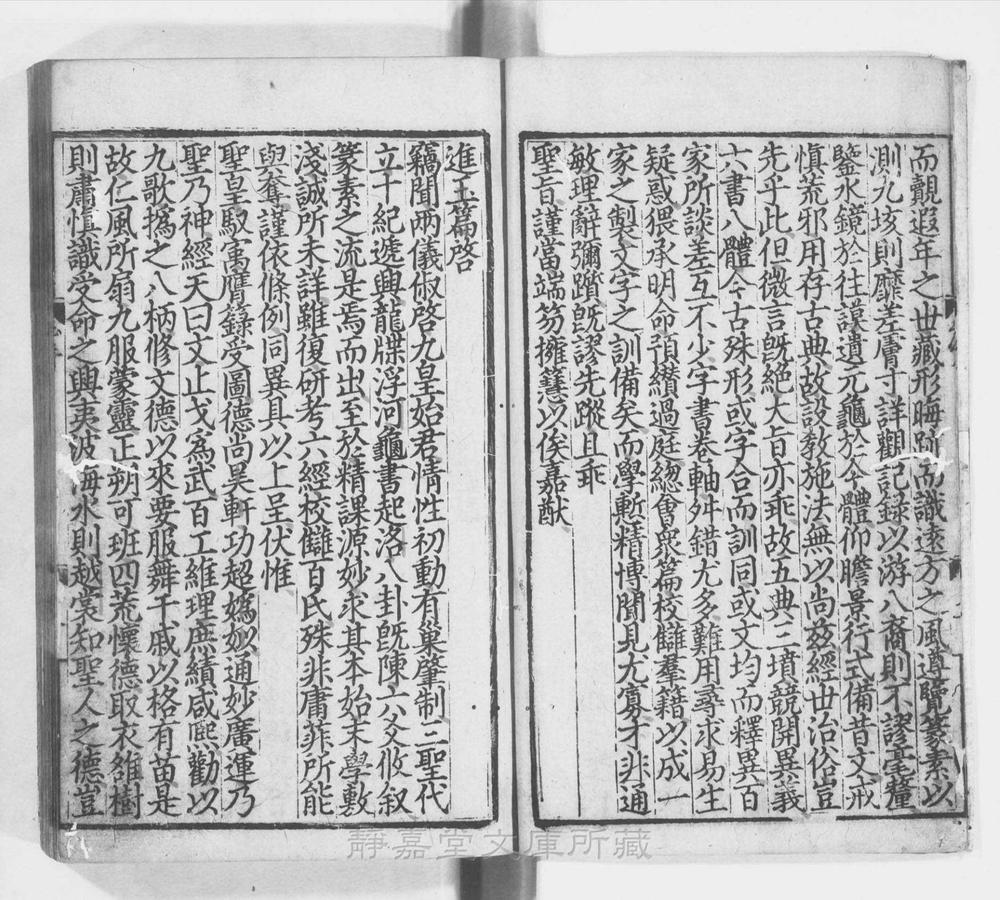 而覿遐年之世藏形晦跡而識遠方之風遵覽篆素以
測九垓則靡差膚寸詳觀記録以游八裔則不謬毫釐
鑒水鏡於往謨遺元龜於今體仰瞻景行式備昔文戒
慎荒邪用存古典故設教施法無以尚兹經世治俗豈
先乎此但微言既絶大旨亦乖故五典三墳競開異義
六書八體今古殊形或字合而訓同或文均而釋異百
家所談差互不少字書卷軸舛錯尤多難用尋求易生
疑惑猥承明命預纘過庭緫會衆篇校讎羣籍以成一
家之製文字之訓備矣而學慙精博聞見尤寡才非通
敏理辭彌躓既謬先蹤且乖
聖旨謹當端笏擁篲以俟嘉猷
進玉篇啓
竊聞兩儀俶啓九皇始君情性初動有巢肇制三聖代
立十紀遞興龍牒浮河龜書起洛八卦既陳六爻攸叙
篆素之流是焉而出至於精課源妙求其本始末學敷
淺誠所未詳雖復研考六經校讎百氏殊非庸菲所能
與奪謹依條例同異具以上呈伏惟
聖皇馭寓膺籙受圖德尚昊軒功超嬀姒通妙廣運乃
聖乃神經天曰文止戈爲武百工維理庶績咸熙勸以
九歌撝之八柄修文德以來要服舞干戚以格有苗是
故仁風所扇九服蒙靈正朔可班四荒懷德取衣雒樹
則肅慎識受命之興夷波海水則越裳知聖人之德豈
靜嘉堂文庫所藏